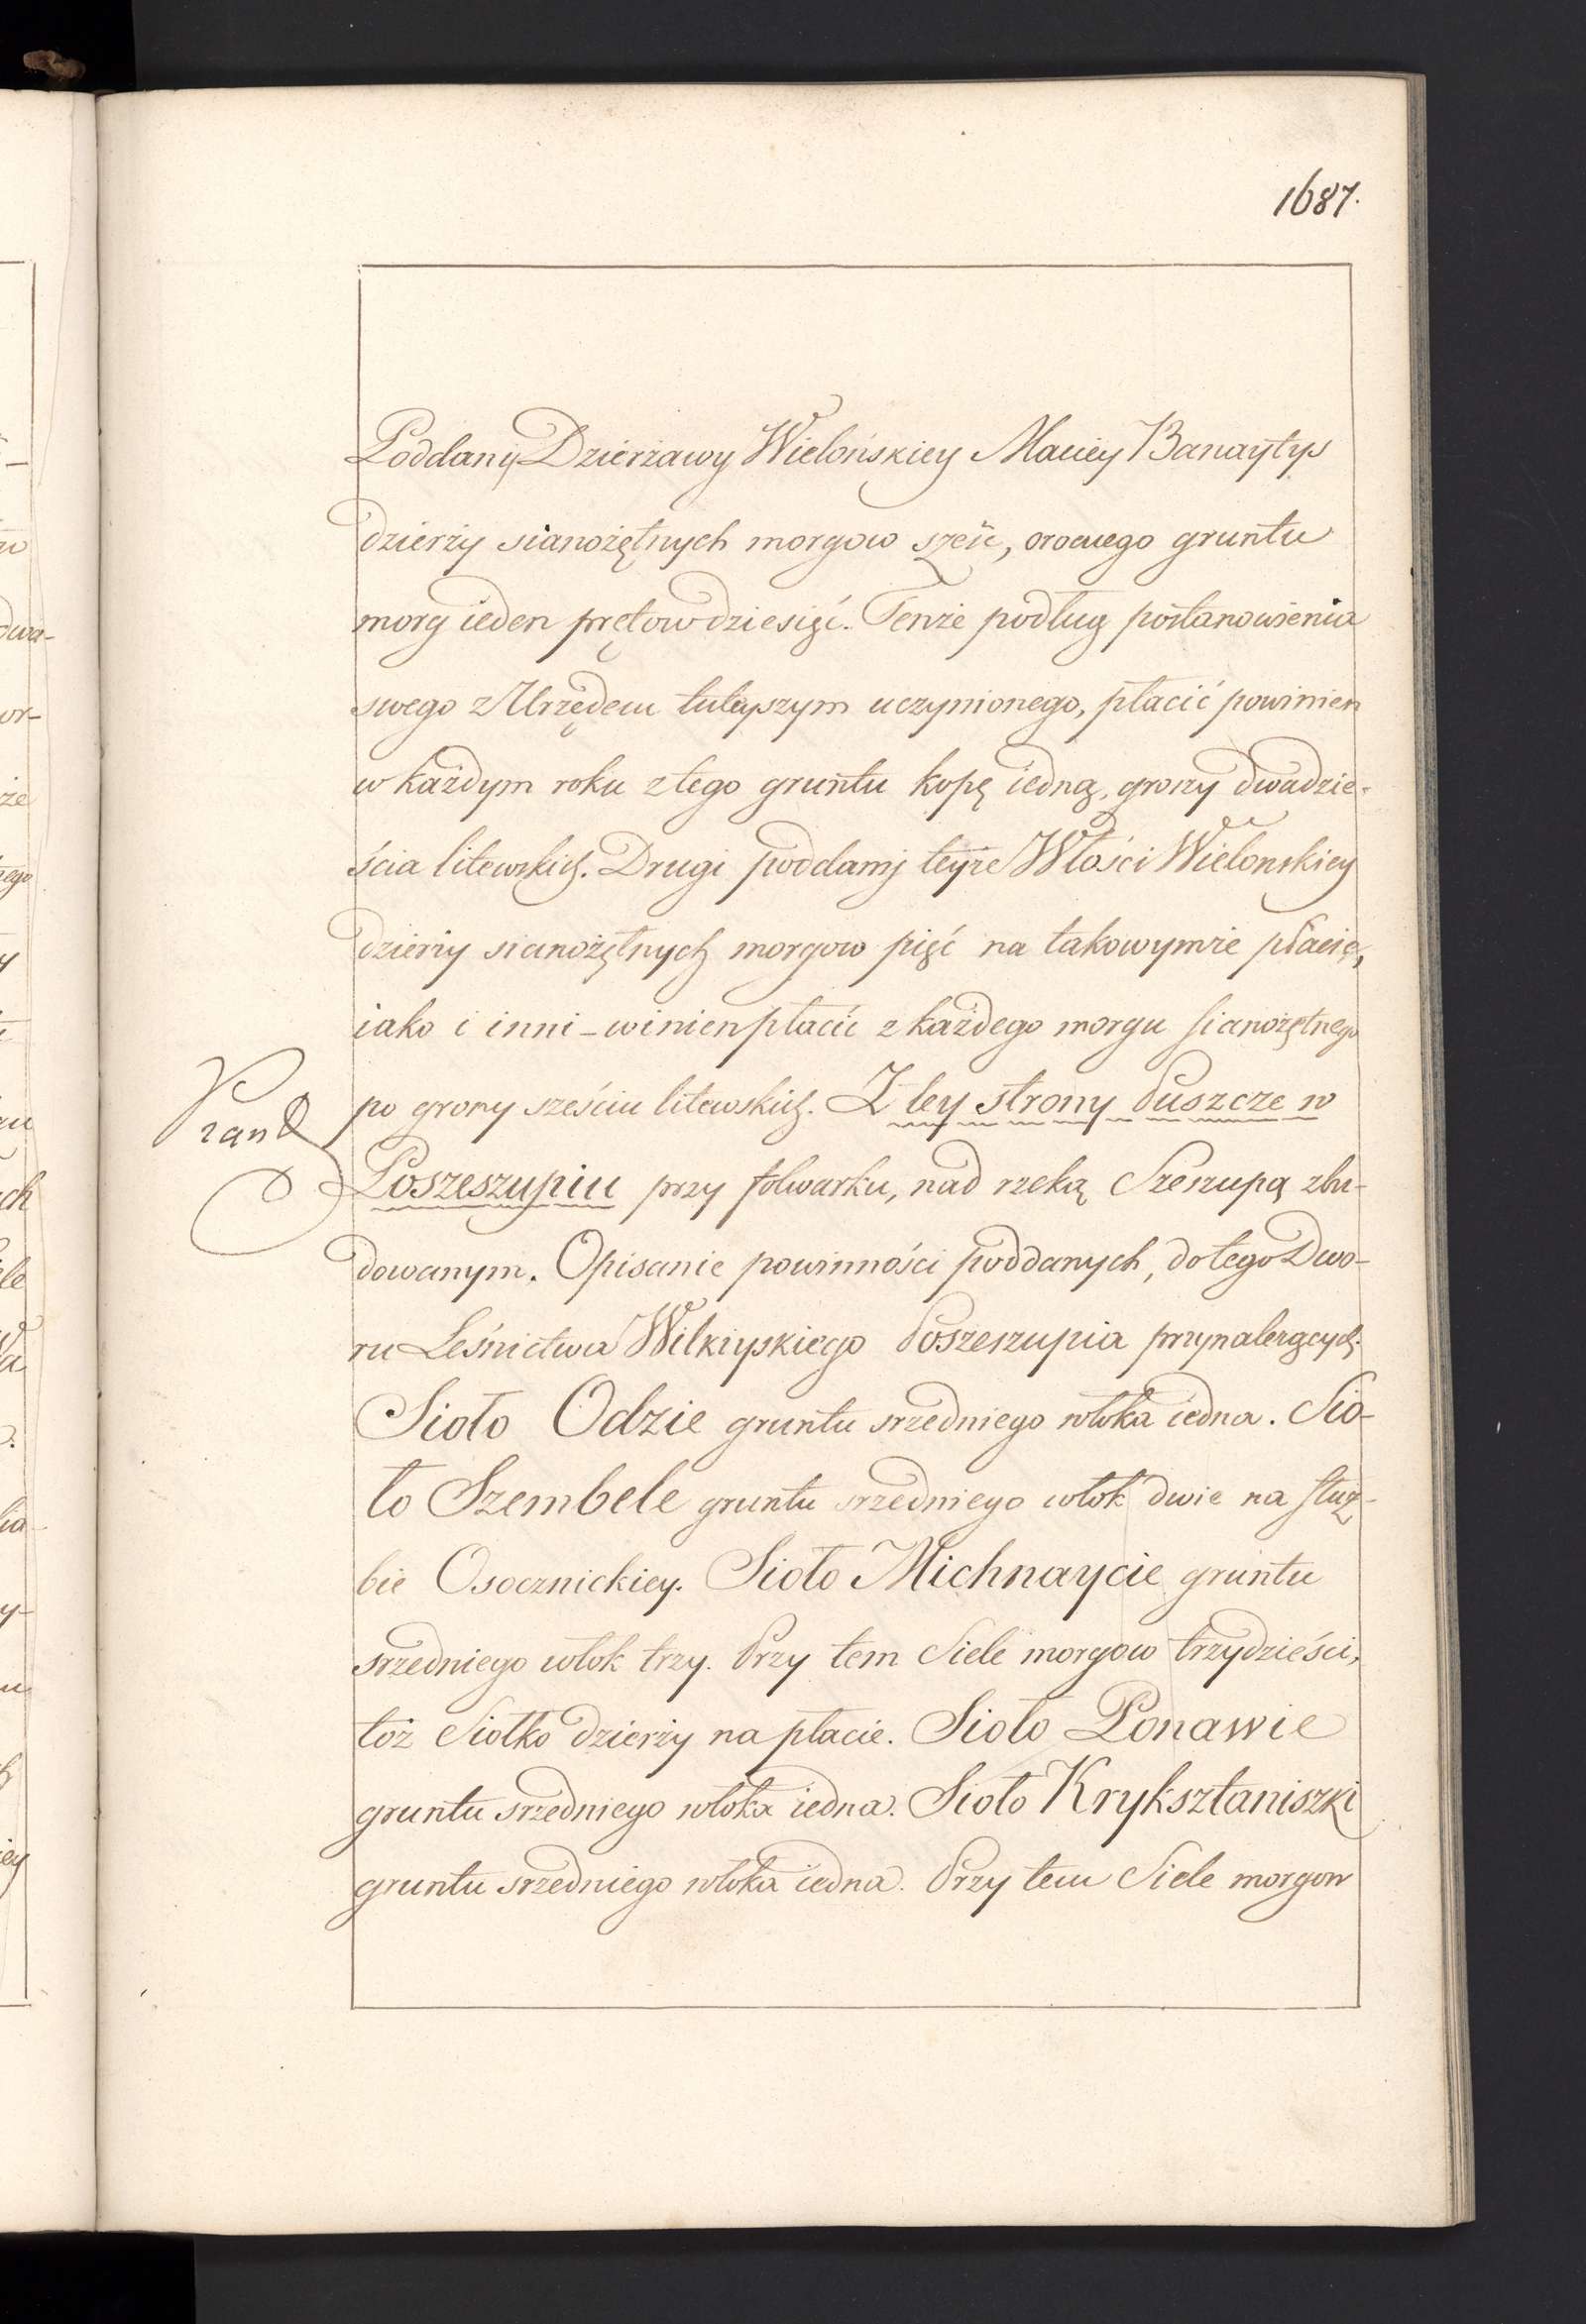 1687.
Poddany Dzierżawy Wielońskiey Maciey Banaytys
dzierży sianożętnych morgow sześć, oroczego gruntu
morg ieden prętow dziesięć. Tenże podług postanowienia
swego z Urzędem tuteyszym uczynionego, płacić powinien
w każdym roku z tego gruntu kopę iedną, groszy dwadzie-
ścia litewskich. Drugi poddany teyże Włości Wielonskiey
dzierży sianożętnych morgow pięć na takowymże płacie,
iako i inni – winien płacić z każdego morgu sianożętnego
po groszy sześciu litewskich. Z tey strony Puszcze w
Poszeszupiu przy folwarku, nad rzeką Szeszupą zbu-
dowanym. Opisanie powinności poddanych, do tego Dwo-
ru Leśnictwa Wilkiyskiego Poszeszupia przynależących.
Sioło Odzie gruntu srzedniego włoka iedna. Sio-
ło Szembele gruntu srzedniego włok dwie na służ-
bie Osocznickiey. Sioło Michnaycie gruntu
srzedniego włok trzy. Przy tem Siele morgow trzydzieści,
toż Siołko dzierży na płacie. Sioło Ponawie
gruntu srzedniego włoka iedna. Sioło Kryksztaniszki
gruntu srzedniego włoka iedna. Przy tem Siele morgow